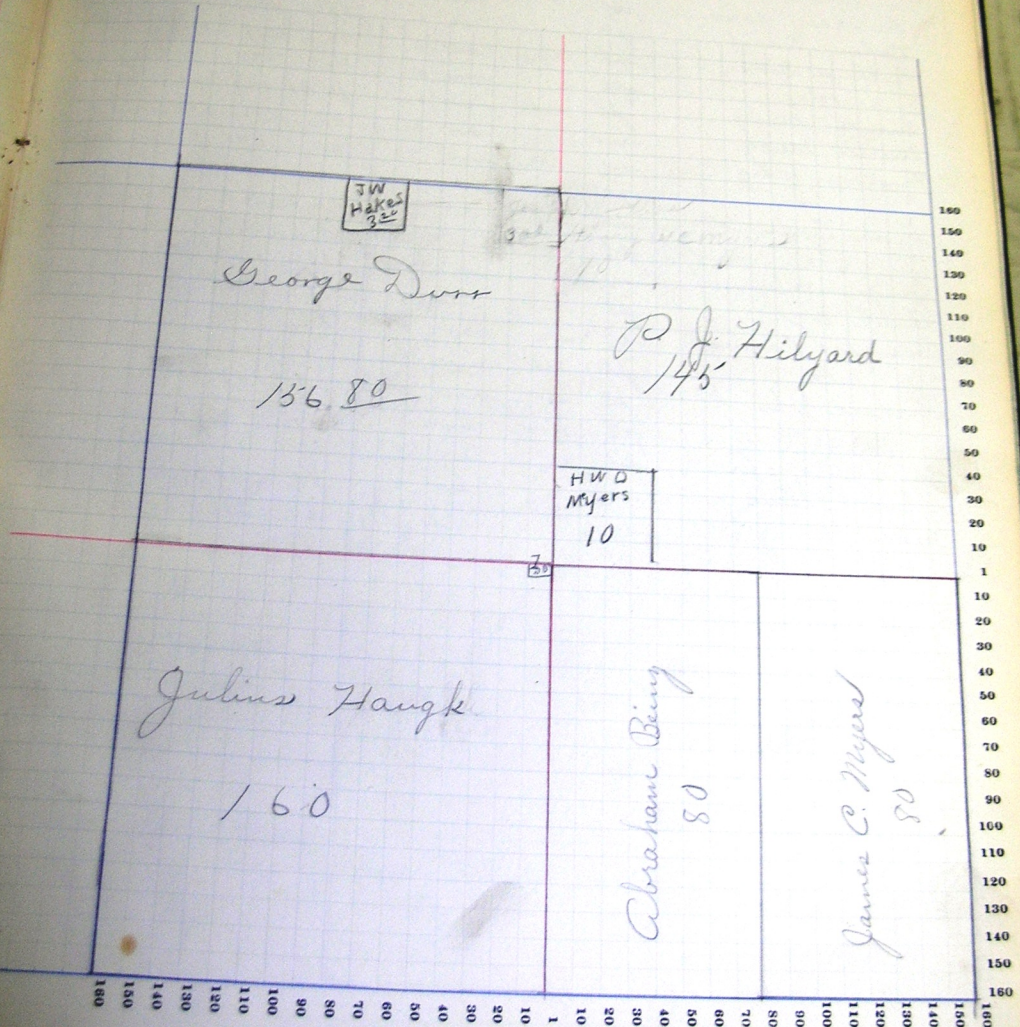 JW
Hakes
3 20
George Durr
156 80
P J Hilyard
145
10
HWD
Myers
10
Julius Haugk
160
Abraham Beiny
80
James C. Myers
80
160
150
140
130
120
110
100
90
80
70
60
50
40
30
20
10
1
10
20
30
40
50
60
70
80
90
100
110
120
130
140
150
160
160 150 140 130 120 110 100 90 80 70 60 50 40 30 20 10 1 10 20 30 40 50 60 70 80 90 100 110 120 130 140 150 160